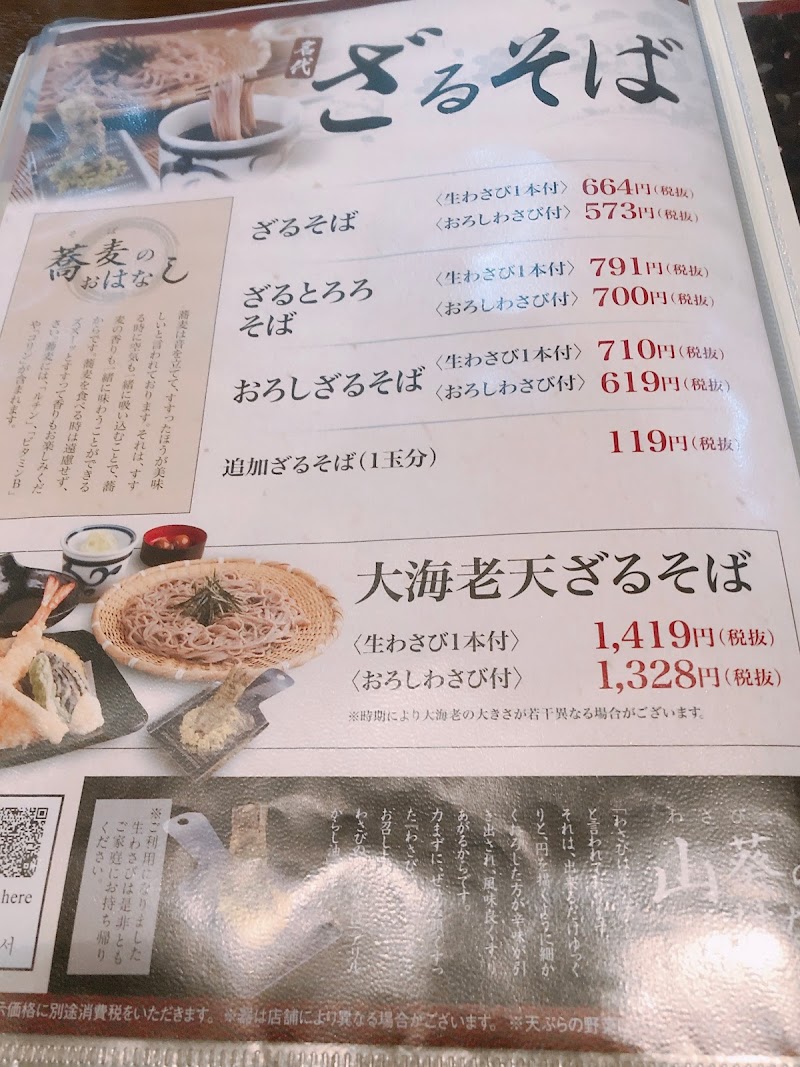 名代
ざるそば
ざるそば
〈生わさび1本付〉 664円(税抜)
〈おろしわさび付〉 573円(税抜)
ざるとろろ
そば
〈生わさび1本付〉 791円(税抜)
〈おろしわさび付〉 700円(税抜)
おろしざるそば
〈生わさび1本付〉 710円(税抜)
〈おろしわさび付〉 619円(税抜)
追加ざるそば(1玉分)
119円(税抜)
そば
蕎麦の
おはなし
蕎麦は音を立てて、すすったほうが美味
しいと言われております。それは、すす
る時に空気も一緒に吸い込むことで、蕎
麦の香りも一緒に味わうことができる
からです。蕎麦を食べる時は遠慮せず、
ズズーッとすすって香りもお楽しみくだ
さい。蕎麦には、「ルチン」、「ビタミンB」
や、「コリン」が含まれます。
大海老天ざるそば
〈生わさび1本付〉 1,419円(税抜)
〈おろしわさび付〉 1,328円(税抜)
※時期により大海老の大きさが若干異なる場合がございます。
here
서
※ご利用になりました
生わさびは是非とも
ご家庭にお持ち帰り
ください。
山葵
「わさびは
と言われて
それは、出来るだけゆっく
りと、円を描くように細か
くおろした方が辛味が引
き出され、風味良くすり
あがるからです。
力まずに、
た「わさび
お召し上
わさび
から
示価格に別途消費税をいただきます。 ※器は店舗により異なる場合がございます。 ※天ぷらの野菜